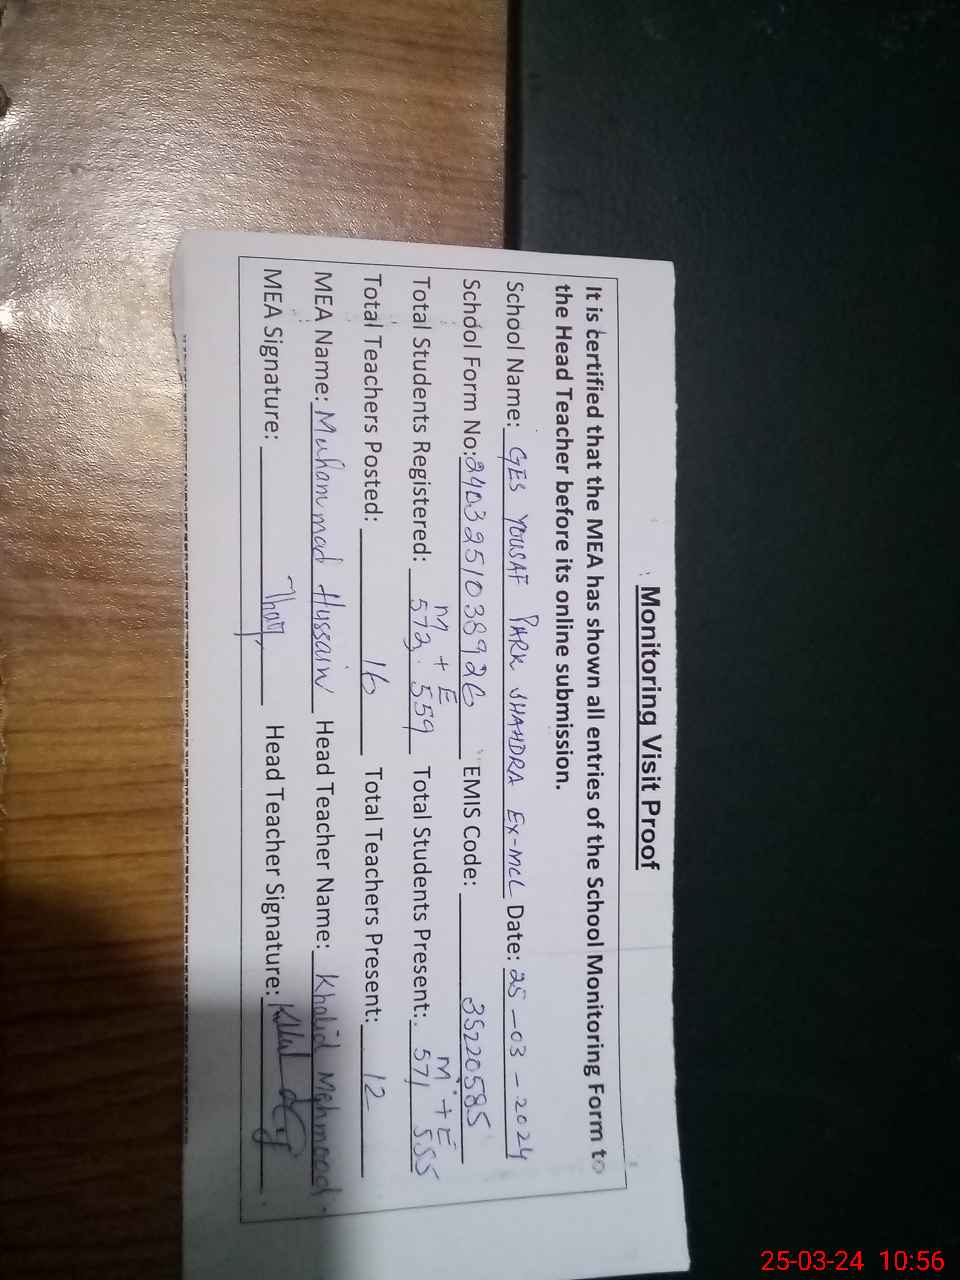 Monitoring Visit Proof
It is certified that the MEA has shown all entries of the School Monitoring Form to
the Head Teacher before its online submission.
School Name: GES YOUSAF PARK SHAHDRA EX-MCL Date: 25-03-2024
School Form No: 2403251038926 EMIS Code: 35220585
M + E M + E
Total Students Registered: 573. 559 Total Students Present: 571 555
Total Teachers Posted: 16 Total Teachers Present: 12
MEA Name: Muhammad Hussain Head Teacher Name: Khalid Mehmood.
MEA Signature: Head Teacher Signature:
25-03-24 10:56